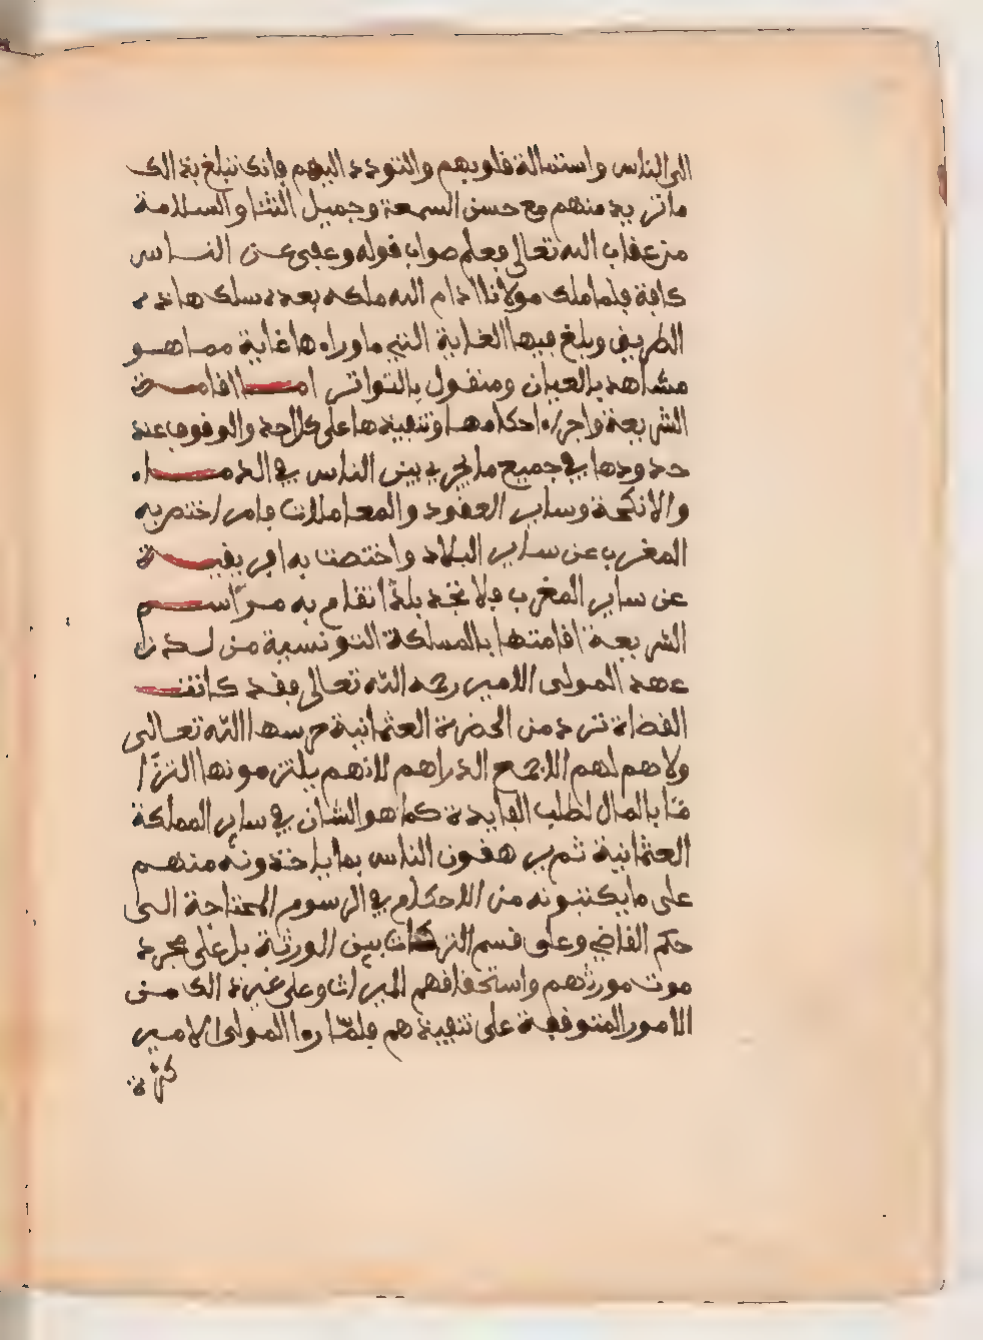 الى الناس واستمالة قلوبهم والتودد اليهم فانك تبلغ بذالك
ما تريد منهم مع حسن السمعة وجميل الثنا والسلامة
من عقاب الله تعالى فعلم صواب قوله وعفى عن الناس
كافة فلما ملك مولانا ادام الله ملكه بعده سلك هاذه
الطريق وبلغ فيها الغاية التي ما وراءها غاية مما هو
مشاهد بالعيان ومنقول بالتواتر امـا اقامـة
الشريعة واجراء احكامها وتنفيذها على كل احد والوقوف عند
حدودها في جميع ما يجري بين الناس في الدمـاء
والانكحة وساير العقود والمعاملات فامر اختص به
المغرب عن ساير البلاد واختصت به افريقيـة
عن ساير المغرب فلا تجد بلدًا تقام به مراسـم
الشريعة اقامتها بالمملكة التونسية من لدن
عهد المولى الامير رحمه الله تعالى فقد كانتـ
القضاة ترد من الحضرة العثمانية حرسها الله تعالى
ولا هم لهم الا جمع الدراهم لانهم يلتزمونها التزا
مًا بالمال لطلب الفايدة كما هو الشان في ساير المملكة
العثمانية ثم يرهقون الناس بما ياخذونه منهم
على ما يكتبونه من الاحكام في الرسوم المحتاجة الى
حكم القاضي وعلى قسم التركات بين الورثة بل على مجرد
موت مورثهم واستحقاقهم الميراث وعلى غير ذالك من
الامور المتوقفة على تنفيذهم فلمّا رءا المولى الامير
كثرة